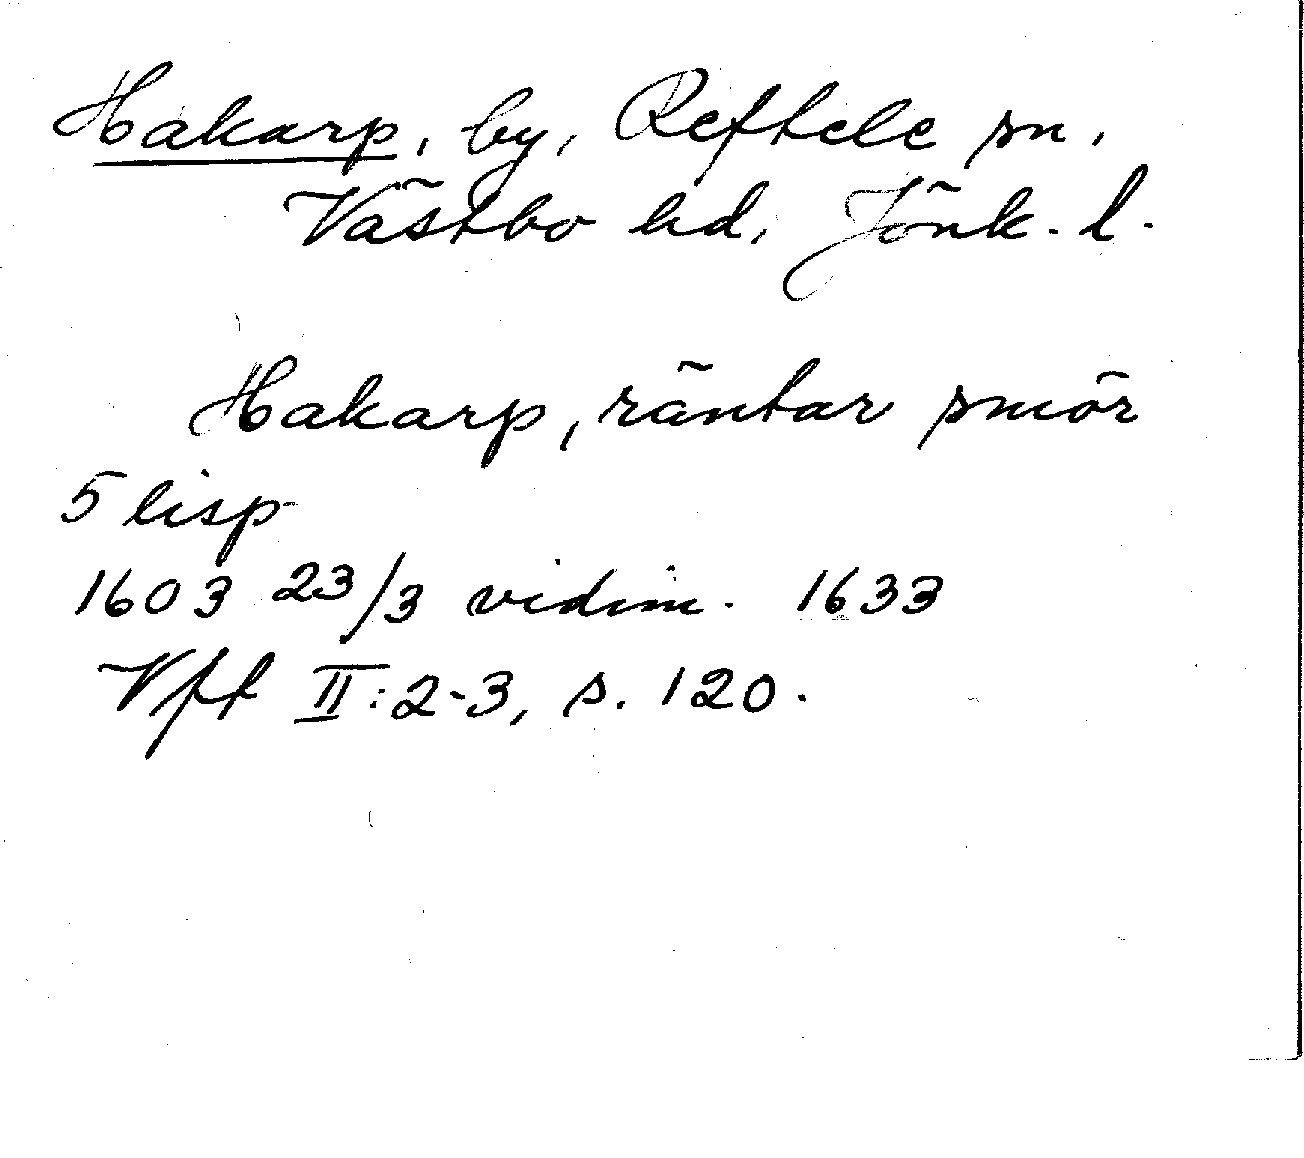 Hakarp, by, Reftele sn,
Västbo hd, Jönk. l.
Hakarp, räntar smör
5 lisp
1603 23/3 vidim. 1633
Vfl II:2-3, s. 120.